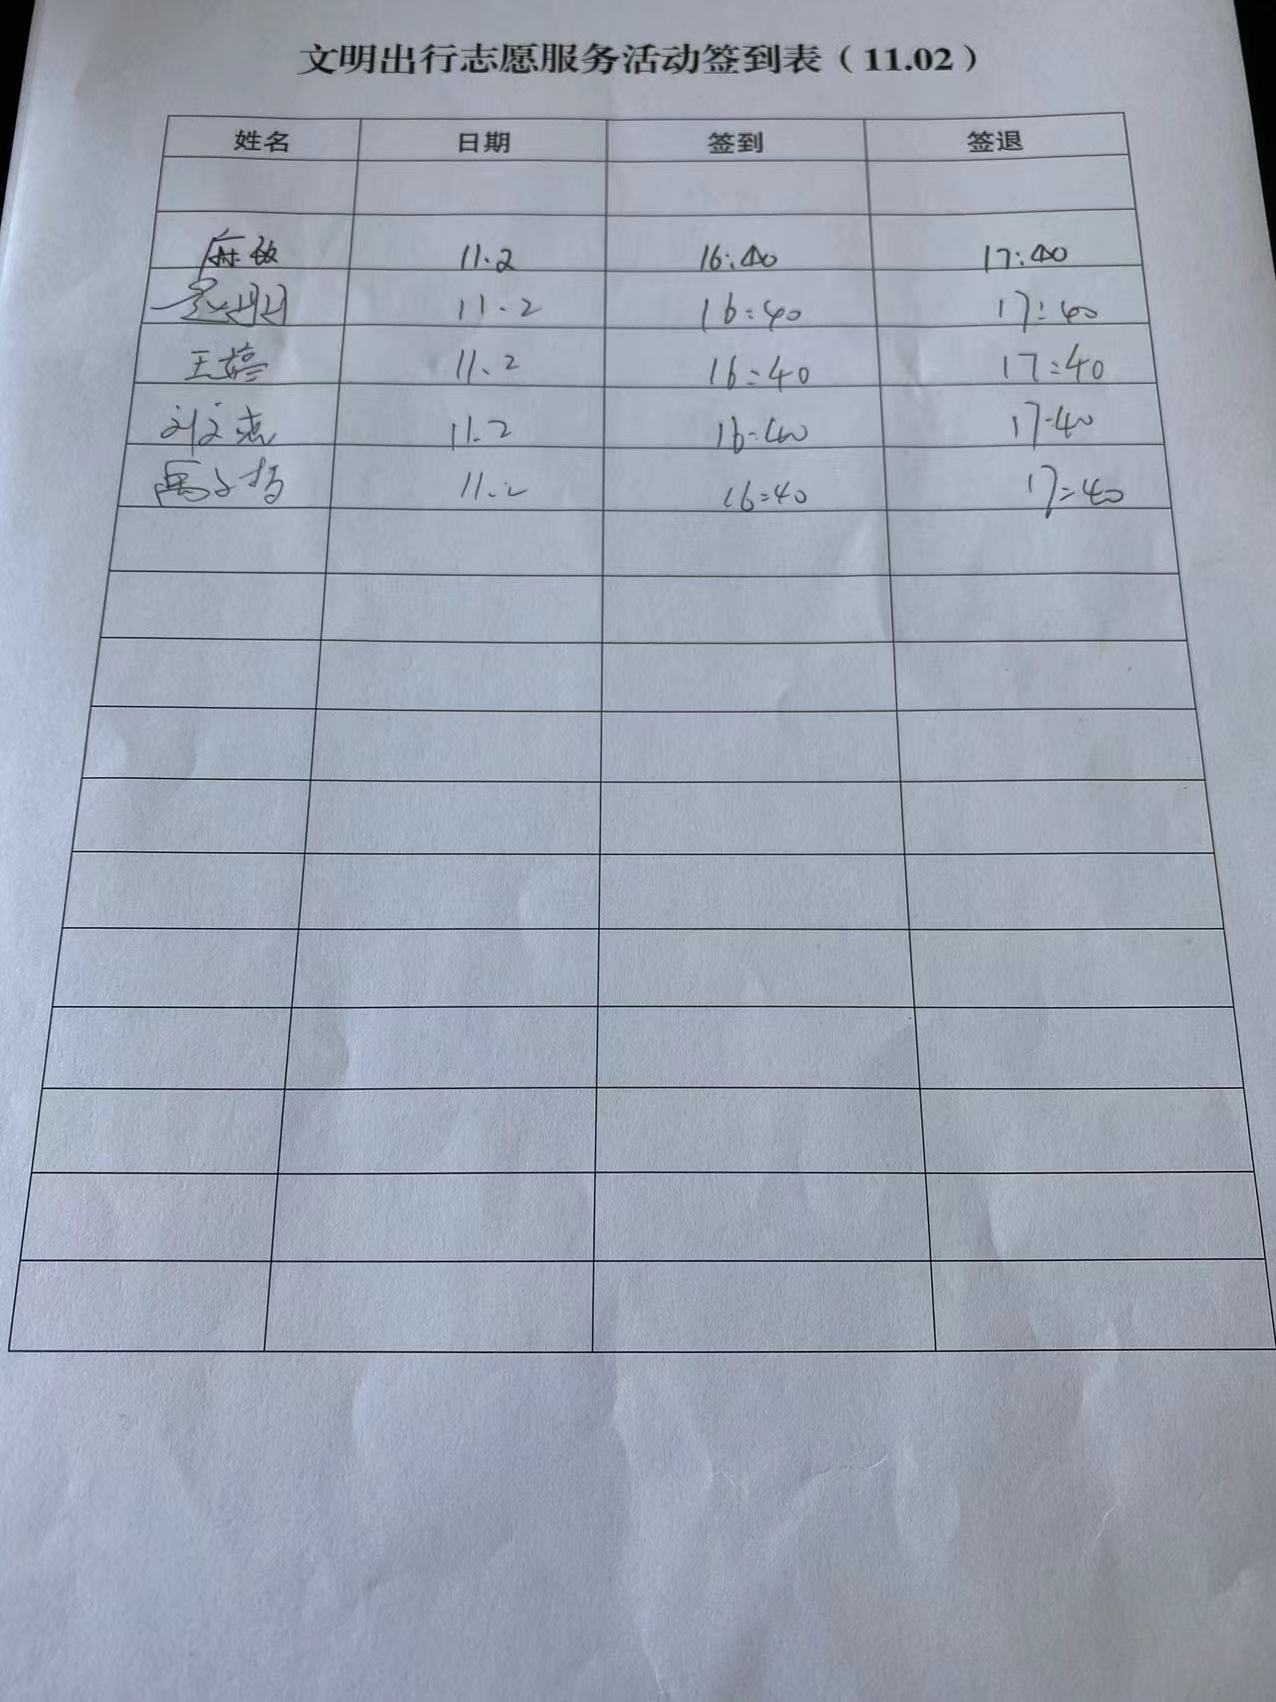 文明出行志愿服务活动签到表（11.02）
姓名 日期 签到 签退
麻敏 11.2 16:40 17:40
11.2 16:40 17:40
王婷 11.2 16:40 17:40
刘文杰 11.2 16:40 17:40
11.2 16:40 17:40